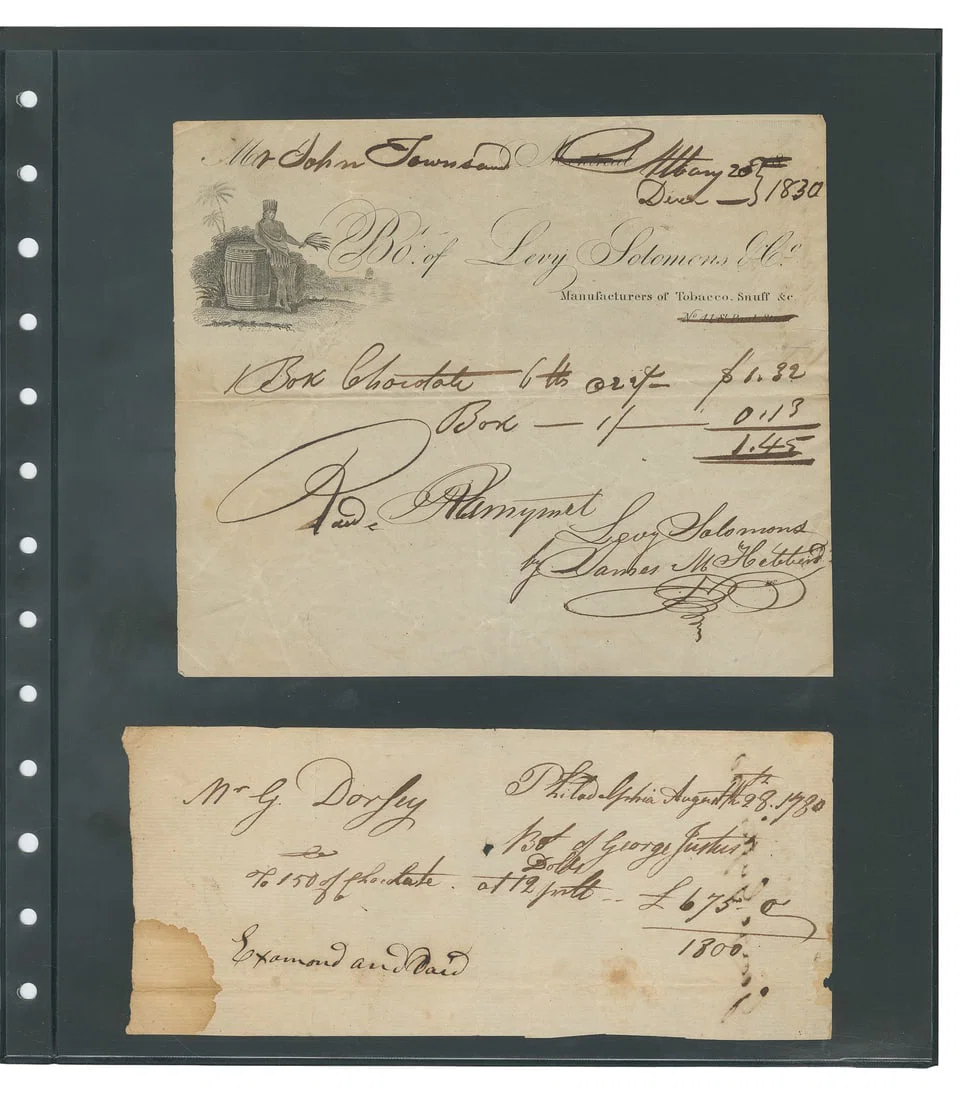 Mr John Townsend Albany 28th
Decr 1830
Bot. of Levy Solomons & Co.
Manufacturers of Tobacco, Snuff &c.
1 Box Chocolate 6 lbs @ 22 $1.32
Box — 1/— 0.13
1.45
Recd Payment
Levy Solomons
by James M Hebberd
Mr G. Dorsey Philadelphia August 28th. 1780
Bot of George Justus
Dolls
To 150 lb of Chocolate. at 12 pr lb -- £ 675 0
1800
Examond and Paid